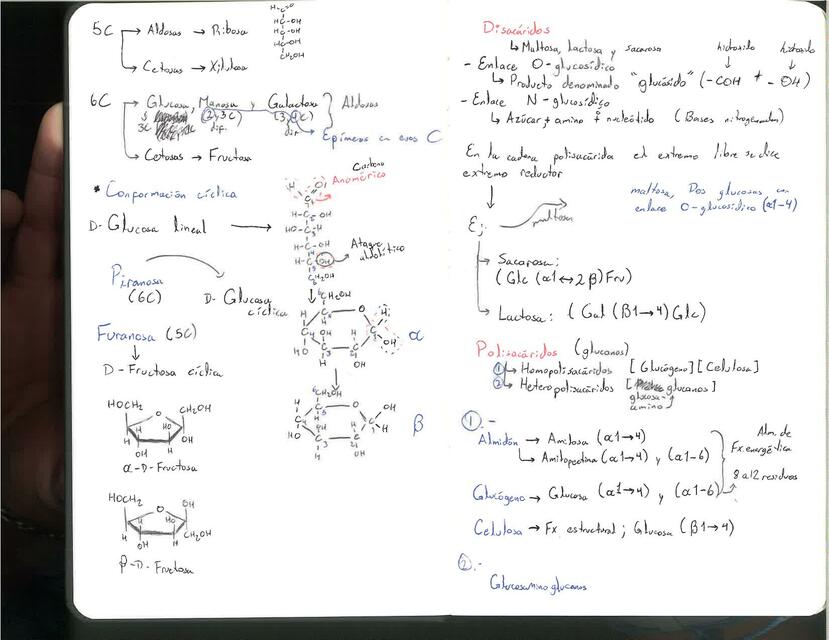 5C → Aldosas → Ribosa
→ Cetosas → Xilulosa
H-C=O
H-C-OH
H-C-OH
H-C-OH
CH₂OH
6C → Glucosa, Manosa y Galactosa } Aldosas
(2,3C) (3,4C)
3C dif. dif
Epímeros en esos C
→ Cetosas → Fructosa
* Conformación cíclica
Carbono
Anomérico
D-Glucosa lineal →
H O
C
H-C-OH
HO-C-H
H-C-OH
H-C-OH
CH₂OH
Ataque
Piranosa
(6C)
D-Glucosa
cíclica
Furanosa (5C)
D-Fructosa cíclica
CH₂OH
O
H
OH
HO
α
CH₂OH
O
OH
HO
H
β
HOCH₂ O CH₂OH
H HO
H OH
OH H
α-D-Fructosa
HOCH₂ O OH
H HO
CH₂OH
OH H
β-D-Fructosa
Disacáridos
↳ Maltosa, lactosa y sacarosa
- Enlace O-glucosídico
↳ Producto denominado "glucósido" (-COH + -OH)
- Enlace N-glucosídico
↳ Azúcar + amino nucleótido (Bases nitrogenadas)
En la cadena polisacárida el extremo libre se dice
extremo reductor
maltosa, Dos glucosas con
enlace O-glucosídico (α1-4)
Ej:
maltosa
→ Sacarosa:
(Glc (α1↔2β) Fru)
→ Lactosa: (Gal (β1→4) Glc)
Polisacáridos (glucanos)
① ↳ Homopolisacáridos [Glucógeno] [Celulosa]
② ↳ Heteropolisacáridos [glucanos]
glucosa-
amino
①.-
Almidón → Amilosa (α1→4)
↳ Amilopectina (α1→4) y (α1-6)
Alm. de
Fx. energética
8 a 12 residuos
Glucógeno → Glucosa (α1→4) y (α1-6)
Celulosa → Fx estructural; Glucosa (β1→4)
②.-
Glucosaminoglucanos